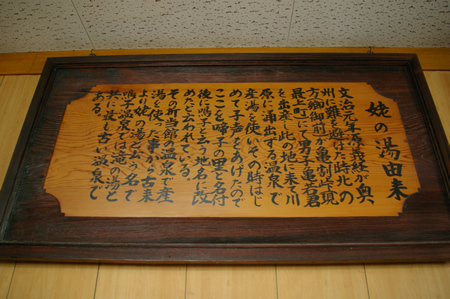 姥の湯由来
文治元年源義経が奥
州に難を避けた時北の
方御御前が亀割峠現
最上町にて男子亀若君
を出産此の地に来て川
原に湧出する温泉で
産湯を使いその時はじ
めて子声をあげたので
ここを啼子の里と名付
後に鳴子と云う地名に改
めたと云われている。
その折当館の温泉で産
湯を使った事から古来
より姥の湯と云う名で
鳴子温泉では滝の湯と
共に最も古い温泉で
ある。